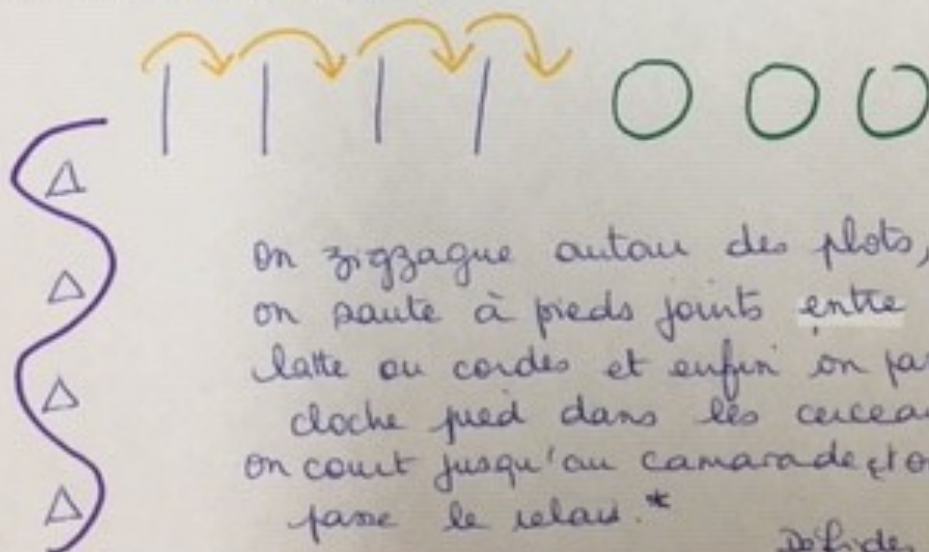 On zigzague autour des plots,
on saute à pieds joints entre
latte ou cordes et enfin on
cloche pied dans les
on court jusqu'au camarade et
passe le relais.*